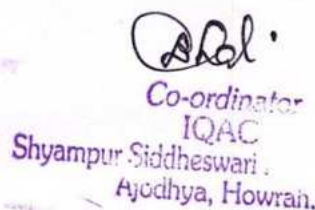 Co-ordinator
IQAC
Shyampur Siddheswari .
Ajodhya, Howrah.